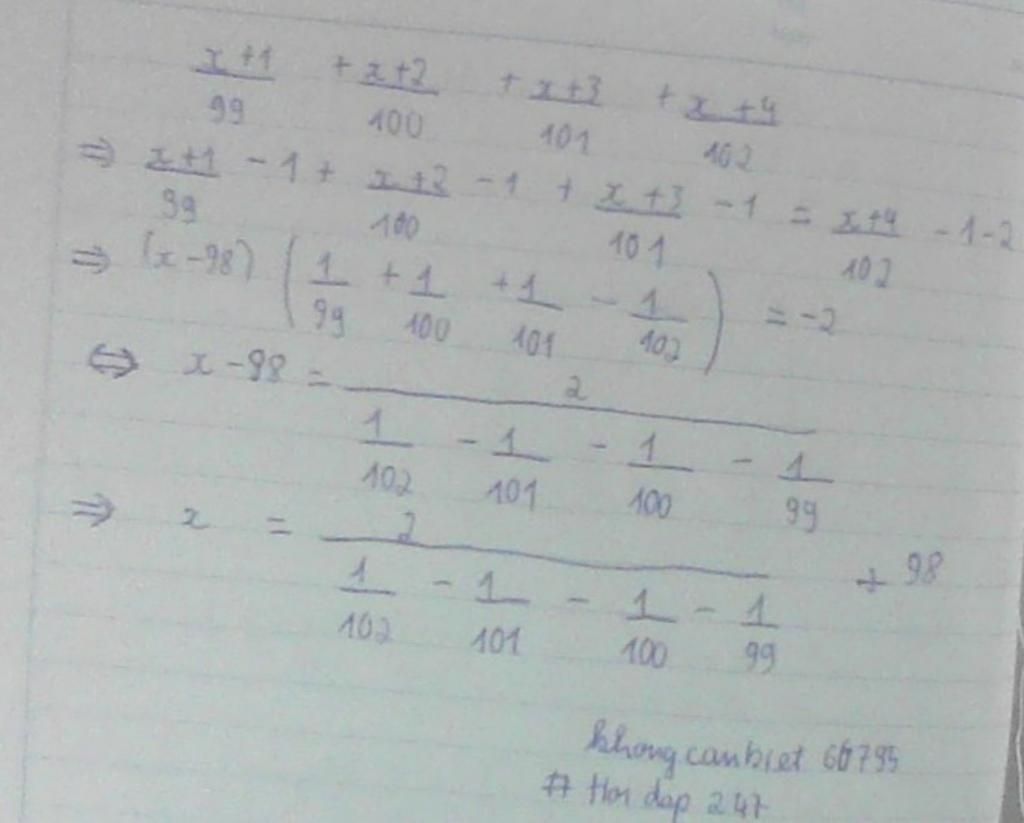 x+1/99 + x+2/100 + x+3/101 + x+4/102
⇒ x+1/99 - 1 + x+2/100 - 1 + x+3/101 - 1 = x+4/102 - 1 - 2
⇒ (x-98) (1/99 + 1/100 + 1/101 - 1/102) = -2
⇔ x-98 = 2/(1/102 - 1/101 - 1/100 - 1/99)
⇒ x = 2/(1/102 - 1/101 - 1/100 - 1/99) + 98
khongcanbiet 60795
# Hoi dap 247